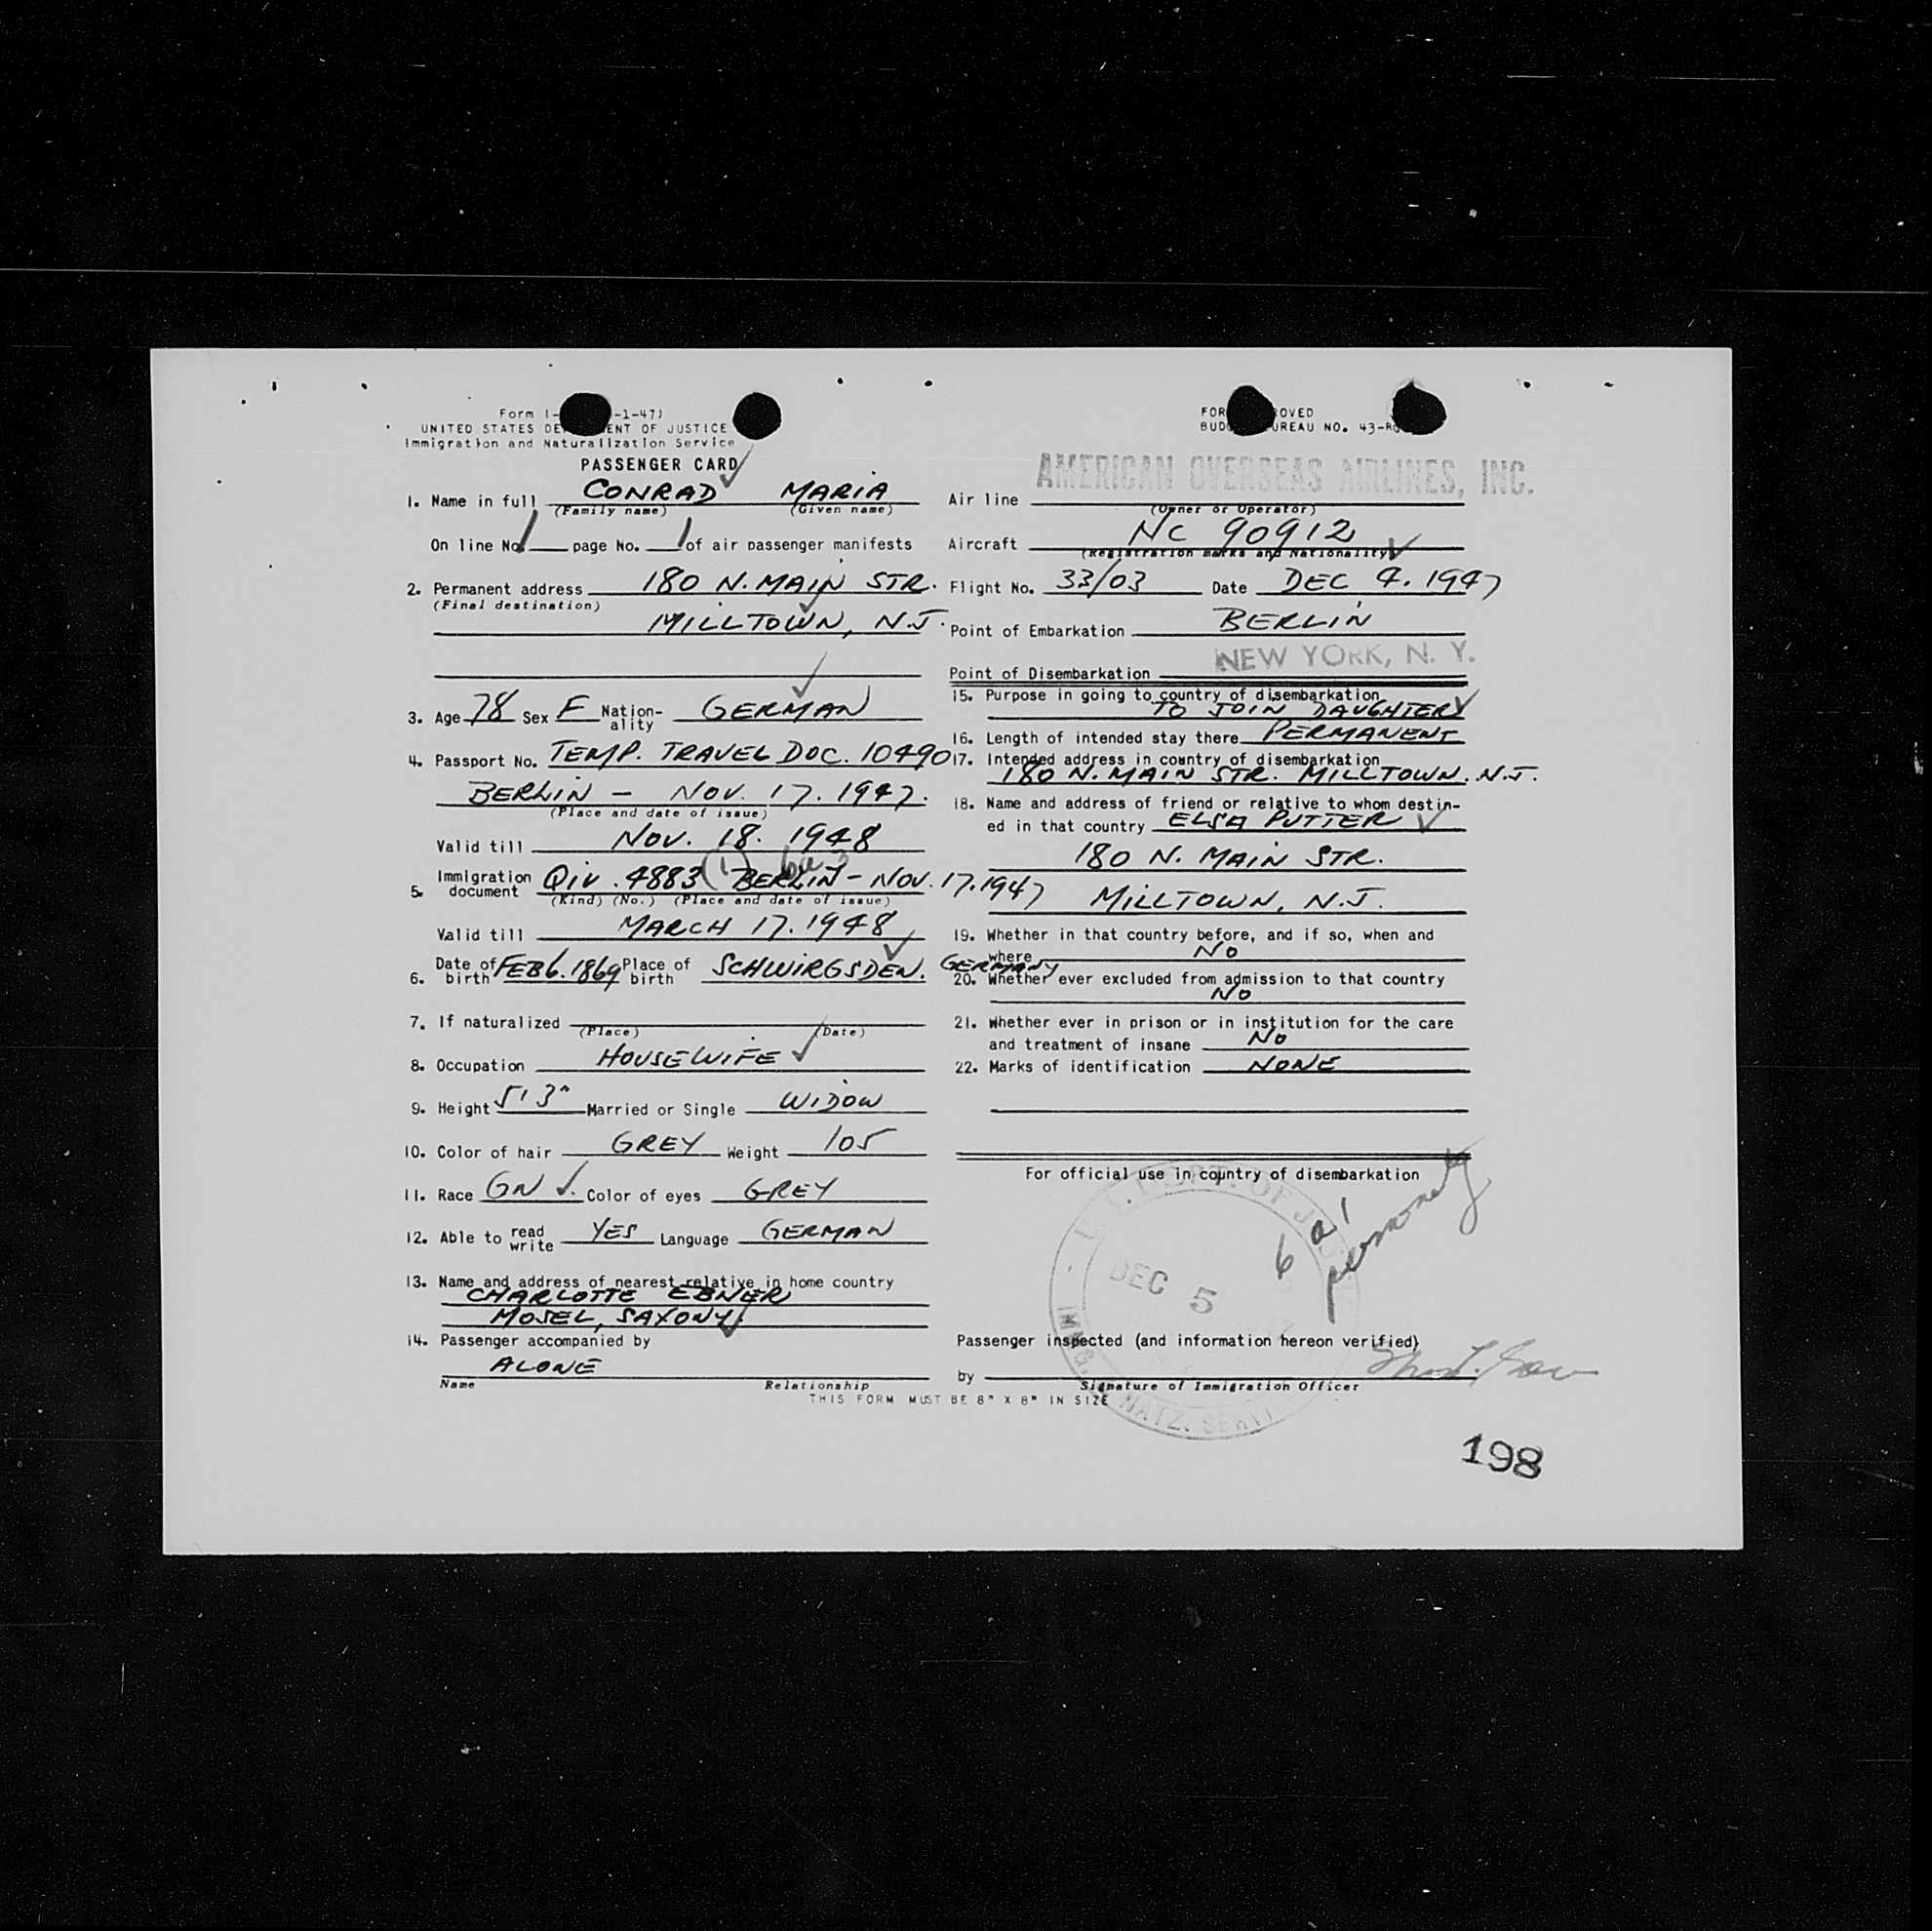 Form I- -1-47)
UNITED STATES DE ENT OF JUSTICE
Immigration and Naturalization Service
FOR OVED
BUD UREAU NO. 43-R
PASSENGER CARD
1. Name in full CONRAD MARIA
(Family name) (Given name)
On line No. 1 page No. 1 of air passenger manifests
2. Permanent address 180 N. MAIN STR.
(Final destination)
MILLTOWN, N.J.
3. Age 78 Sex F Nation-ality GERMAN
4. Passport No. TEMP. TRAVEL DOC. 10490
BERLIN - NOV. 17. 1947.
(Place and date of issue)
Valid till NOV. 18. 1948
5. Immigration document QIV. 4883 (1) BERLIN - NOV. 17.1947
(Kind) (No.) (Place and date of issue)
Valid till MARCH 17. 1948
6. Date of birth FEB 6. 1869 Place of birth SCHWIRGSDEN. GERMANY
7. If naturalized
(Place) (Date)
8. Occupation HOUSEWIFE
9. Height 5' 3" Married or Single WIDOW
10. Color of hair GREY Weight 105
11. Race GN Color of eyes GREY
12. Able to read write YES Language GERMAN
13. Name and address of nearest relative in home country
CHARLOTTE EBNER
MOSEL, SAXONY
14. Passenger accompanied by
ALONE
Name Relationship
AMERICAN OVERSEAS AIRLINES, INC.
Air line
(Owner or Operator)
Aircraft NC 90912
(Registration marks and Nationality)
Flight No. 33/03 Date DEC 4. 1947
Point of Embarkation BERLIN
Point of Disembarkation NEW YORK, N. Y.
15. Purpose in going to country of disembarkation
TO JOIN DAUGHTER
16. Length of intended stay there PERMANENT
17. Intended address in country of disembarkation
180 N. MAIN STR. MILLTOWN. N.J.
18. Name and address of friend or relative to whom destin-
ed in that country ELSA PUTTER
180 N. MAIN STR.
MILLTOWN, N.J.
19. Whether in that country before, and if so, when and
where NO
20. Whether ever excluded from admission to that country
NO
21. Whether ever in prison or in institution for the care
and treatment of insane NO
22. Marks of identification NONE
For official use in country of disembarkation
U.S. DEPT. OF JUST
DEC 5
IMMG. NATZ. SERVI
Passenger inspected (and information hereon verified)
by
Signature of Immigration Officer
THIS FORM MUST BE 8" X 8" IN SIZE
198